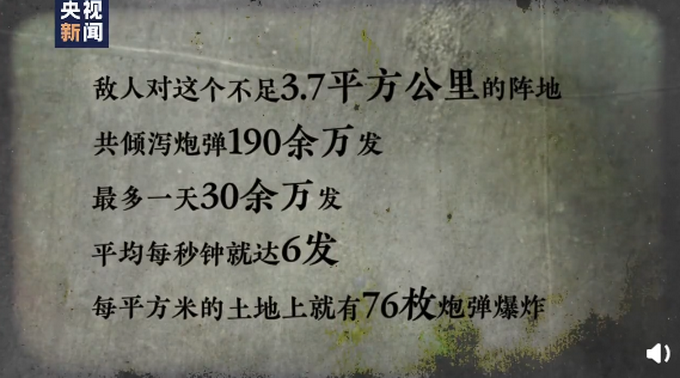 央视
新闻
敌人对这个不足3.7平方公里的阵地
共倾泻炮弹190余万发
最多一天30余万发
平均每秒钟就达6发
每平方米的土地上就有76枚炮弹爆炸